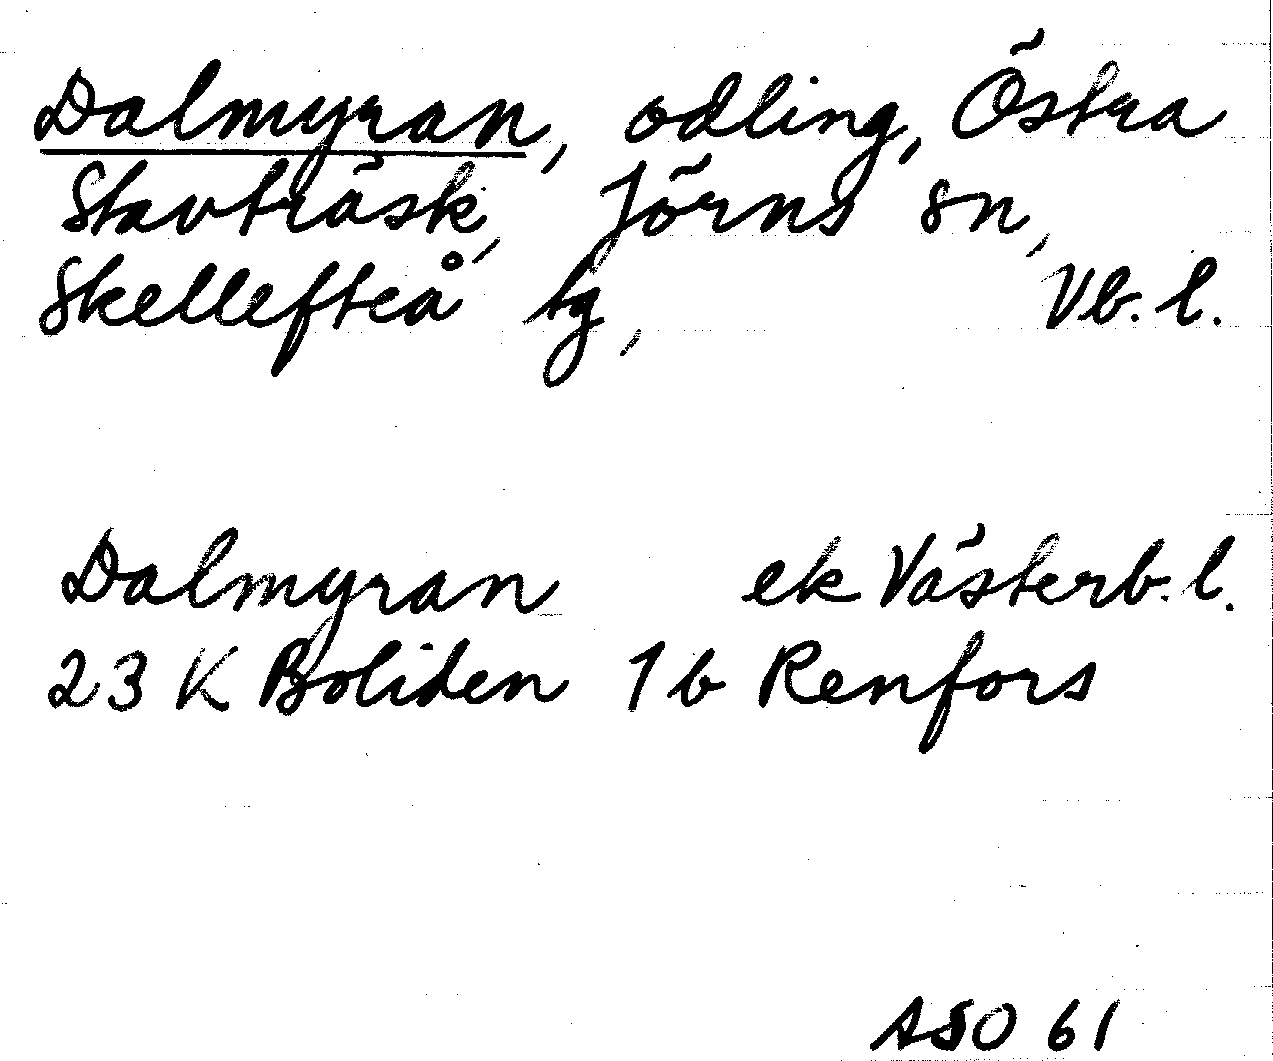 Dalmyran, odling, Östra
Stavträsk, Jörns sn,
Skellefteå tg, Vb. l.
Dalmyran ek Västerb. l.
23 K Boliden 1 b Renfors
ASO 61